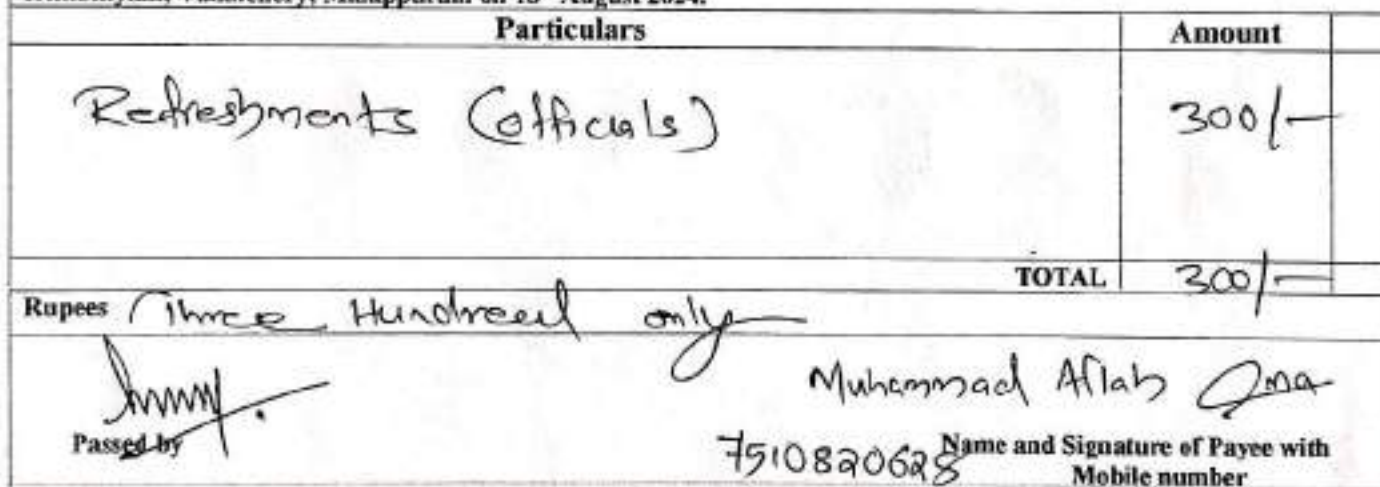 Particulars Amount
Refreshments (officials) 300/-
TOTAL 300/-
Rupees Three Hundred only
Muhammad Aflah
Passed by 7510820628 Name and Signature of Payee with
Mobile number